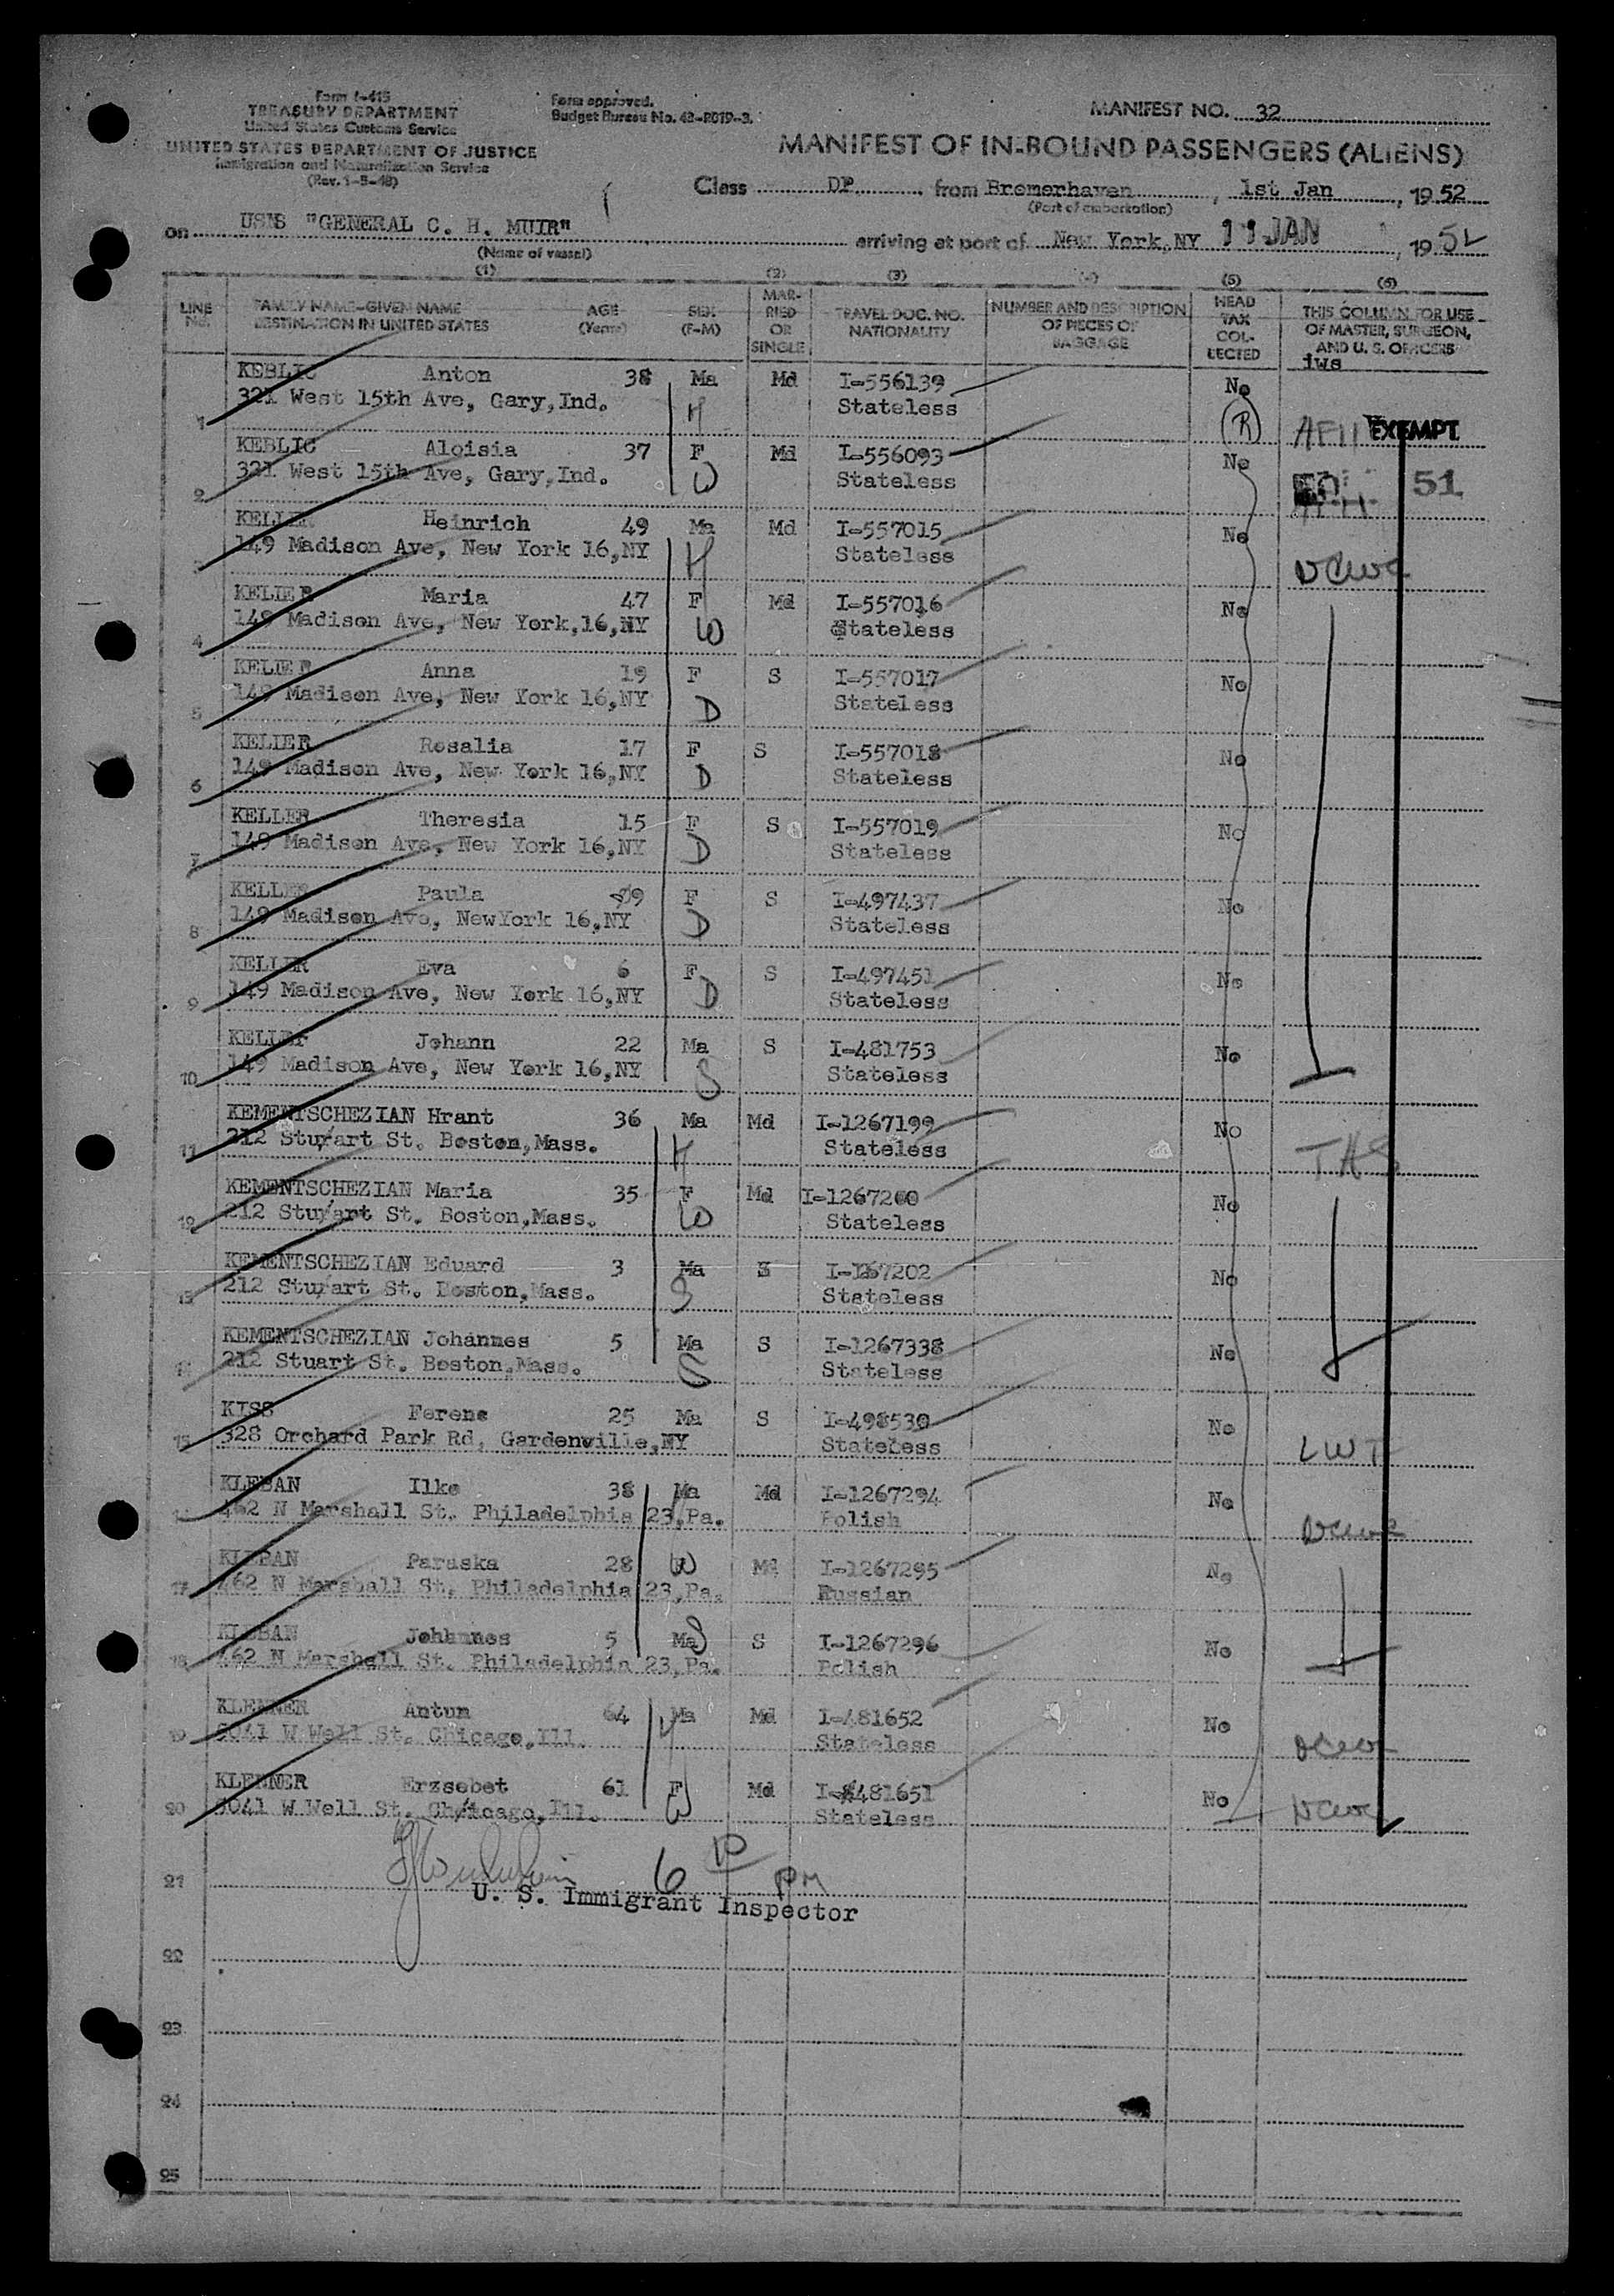 Form I-415
TREASURY DEPARTMENT
United States Customs Service
UNITED STATES DEPARTMENT OF JUSTICE
Immigration and Naturalization Service
(Rev. 1-5-48)
Form approved.
Budget Bureau No. 43-R019-3.
MANIFEST NO. 32
MANIFEST OF IN-BOUND PASSENGERS (ALIENS)
Class DP from Bremerhaven, 1st Jan, 1952
(Port of embarkation)
on USNS "GENERAL C. H. MUIR" arriving at port of New York, NY 11 JAN, 1952
(Name of vessel)
(1) (2) (3) (4) (5) (6)
LINE No. FAMILY NAME-GIVEN NAME DESTINATION IN UNITED STATES AGE (Years) SEX (F-M) MARRIED OR SINGLE TRAVEL DOC. NO. NATIONALITY NUMBER AND DESCRIPTION OF PIECES OF BAGGAGE HEAD TAX COLLECTED THIS COLUMN FOR USE OF MASTER, SURGEON, AND U. S. OFFICERS
iws
KEBLIC Anton 38 Ma Md I-556139 No
1 321 West 15th Ave, Gary, Ind. H Stateless (R) EXEMPT
KEBLIC Aloisia 37 F Md I-556093 No
2 321 West 15th Ave, Gary, Ind. W Stateless 51
KELLER Heinrich 49 Ma Md I-557015 No
3 149 Madison Ave, New York 16, NY H Stateless NCWC
KELLER Maria 47 F Md I-557016 No
4 149 Madison Ave, New York, 16, NY W Stateless
KELLER Anna 19 F S I-557017 No
5 149 Madison Ave, New York 16, NY D Stateless
KELLER Rosalia 17 F S I-557018 No
6 149 Madison Ave, New York 16, NY D Stateless
KELLER Theresia 15 F S I-557019 No
7 149 Madison Ave, New York 16, NY D Stateless
KELLER Paula 9 F S I-497437 No
8 149 Madison Ave, NewYork 16, NY D Stateless
KELLER Eva 6 F S I-497451 No
9 149 Madison Ave, New York 16, NY D Stateless
KELLER Johann 22 Ma S I-481753 No
10 149 Madison Ave, New York 16, NY S Stateless
KEMENTSCHEZIAN Hrant 36 Ma Md I-1267199 No
11 212 Stuart St. Boston, Mass. H Stateless
KEMENTSCHEZIAN Maria 35 F Md I-1267200 No
12 212 Stuart St. Boston, Mass. W Stateless
KEMENTSCHEZIAN Eduard 3 Ma S I-1267202 No
13 212 Stuart St. Boston, Mass. S Stateless
KEMENTSCHEZIAN Johannes 5 Ma S I-1267338 No
14 212 Stuart St. Boston, Mass. S Stateless
KISS Ferenc 25 Ma S I-498530 No
15 328 Orchard Park Rd, Gardenville, NY Stateless LWF
KLEBAN Ilko 38 Ma Md I-1267294 No
16 462 N Marshall St. Philadelphia 23, Pa. Polish NCWC
KLEBAN Paraska 28 W Md I-1267295 No
17 462 N Marshall St. Philadelphia 23, Pa. Russian
KLEBAN Johannes 5 Ma S S I-1267296 No
18 462 N Marshall St. Philadelphia 23, Pa. Polish
KLEBNER Antun 64 Ma Md I-481652 No
19 5041 W Well St. Chicago, Ill. H Stateless NCWC
KLEBNER Erzsebet 61 F Md I-481651 No
20 5041 W Well St. Chicago, Ill. W Stateless NCWC
21 6 10 PM
U. S. Immigrant Inspector
22
23
24
25